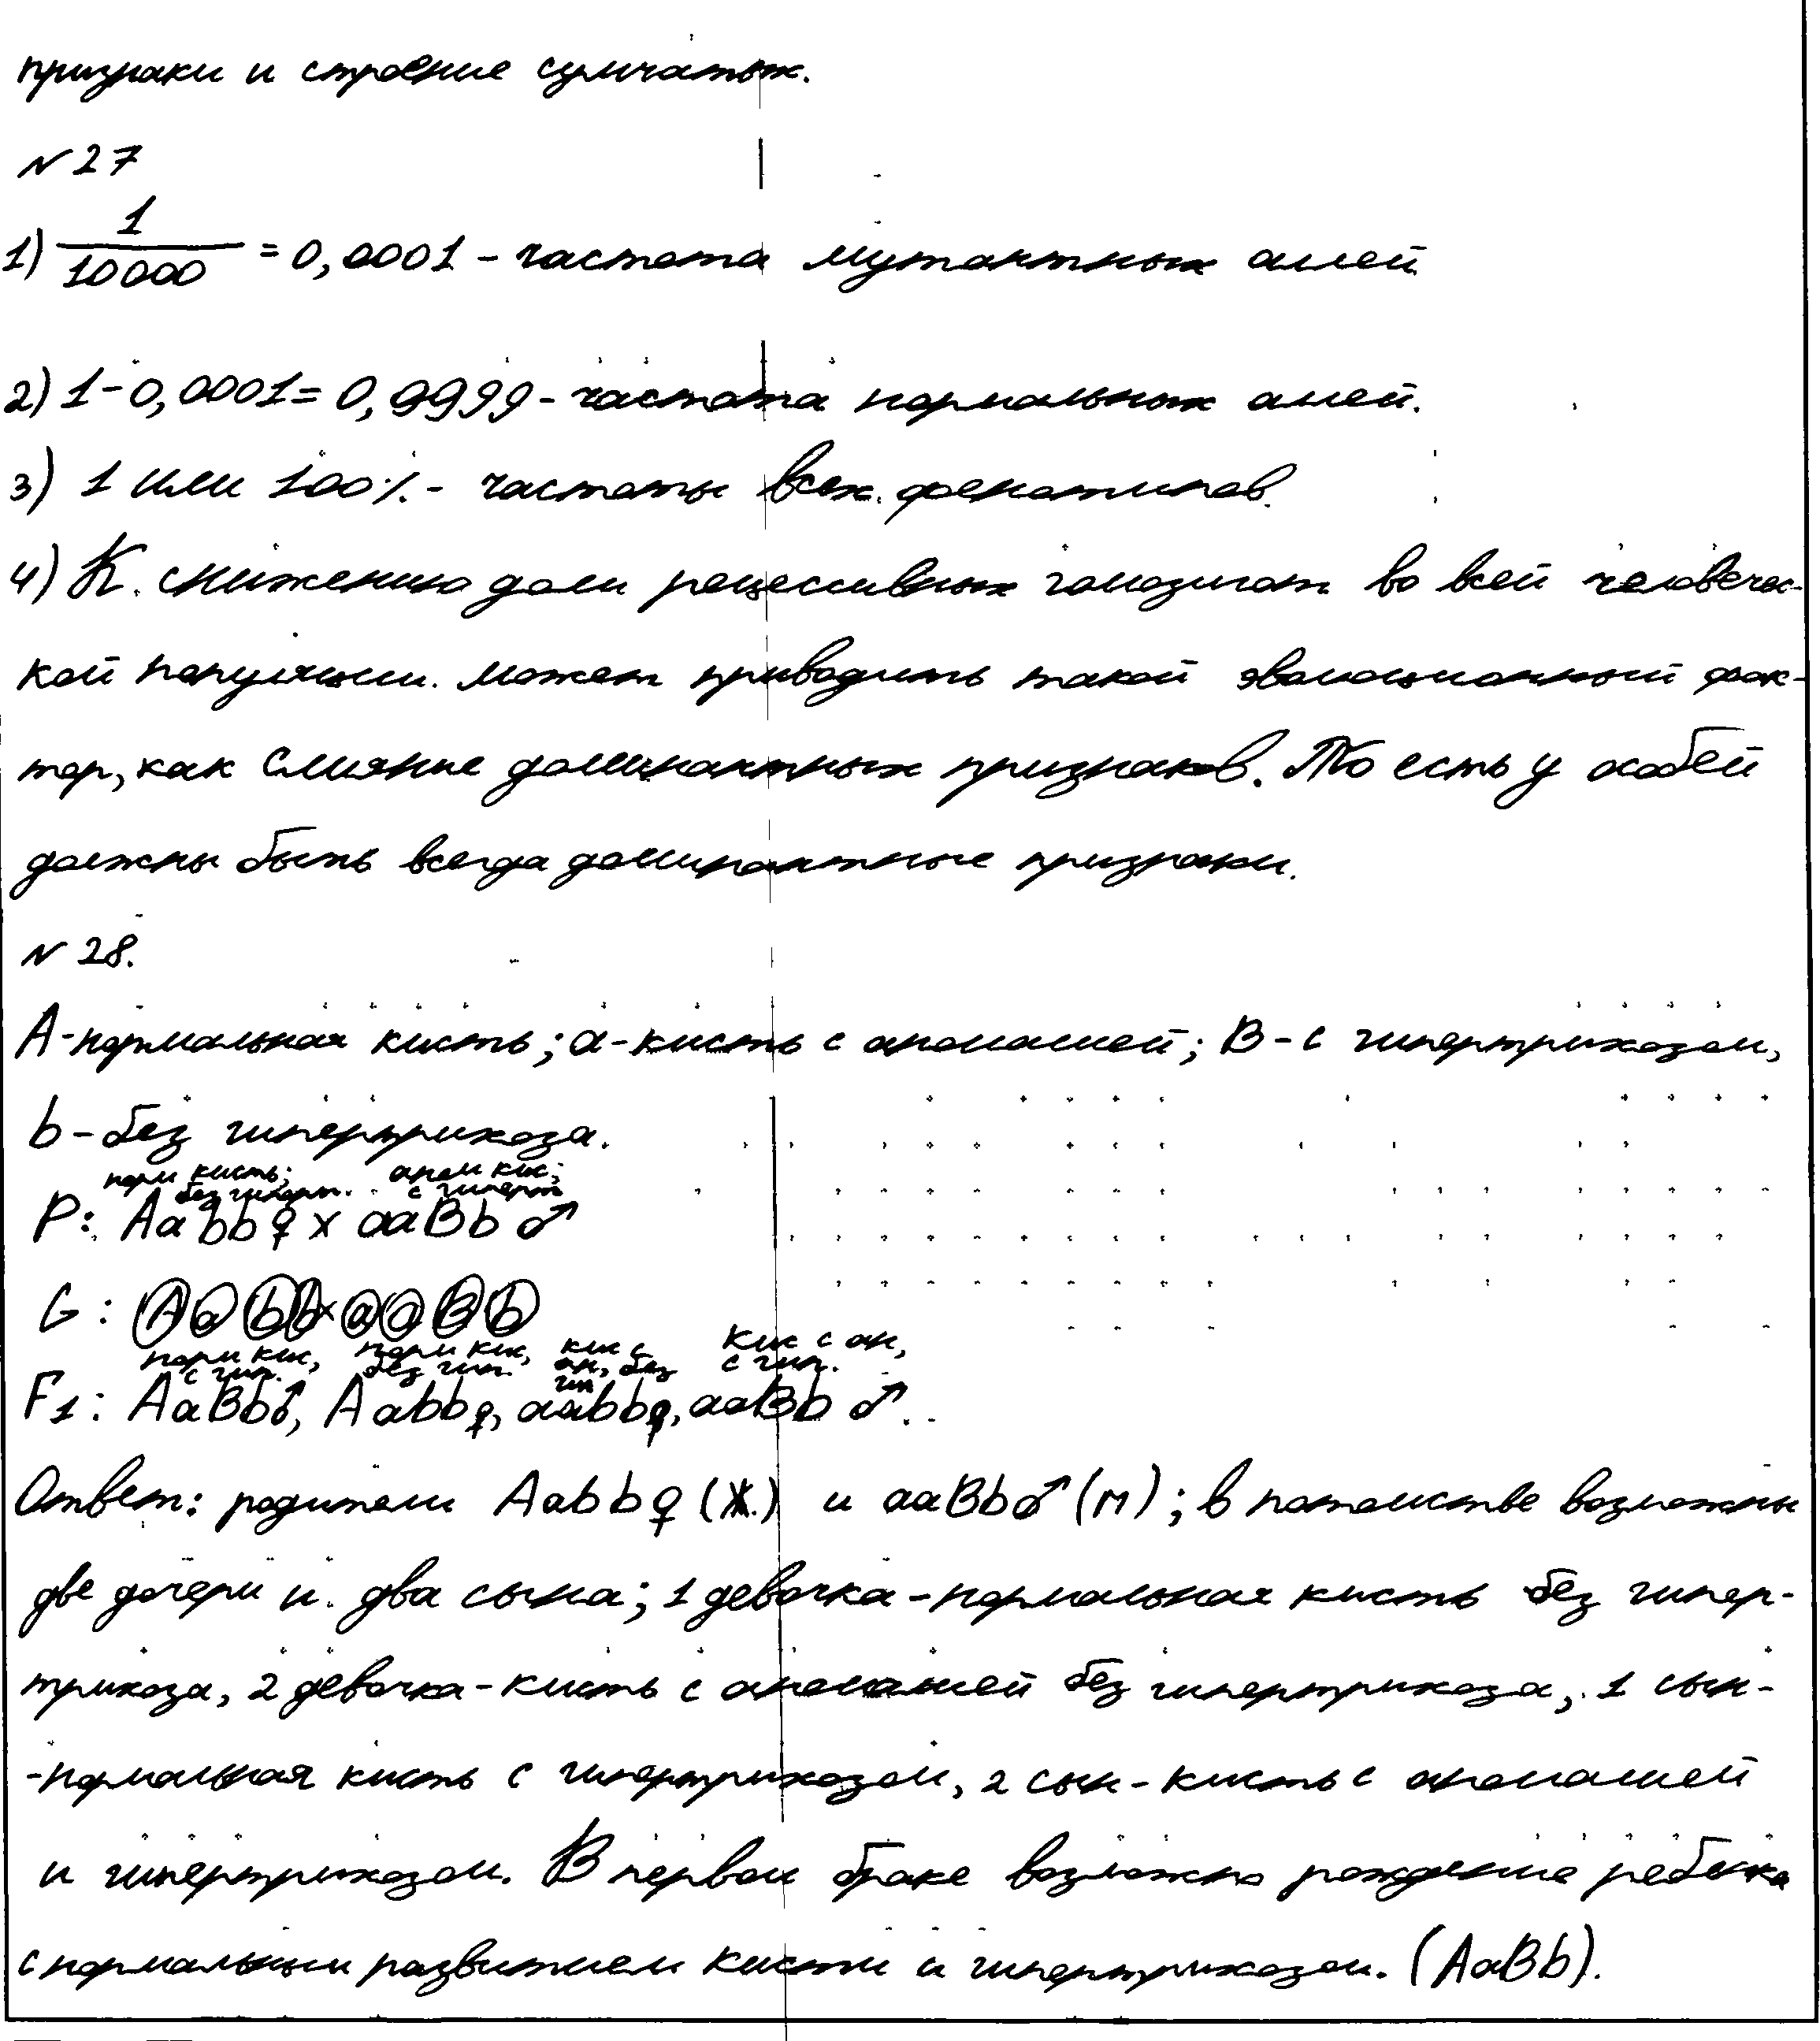 признаки и строение сумчатых.
№27
1) 1/10000 = 0,0001 - частота мутантных аллей
2) 1-0,0001=0,9999 - частота нормальных аллей.
3) 1 или 100% - частоты всех фенотипов.
4) К снижению доли рецессивных гомозигот во всей человечес-
кой популяции может приводить такой эволюционный фак-
тор, как слияние доминантных признаков. То есть у особей
должны быть всегда доминантные признаки.
№ 28.
A-нормальная кисть; a-кисть с аномалией; B-с гипертрихозом,
b-без гипертрихоза.
норм кисть; аном кис;
без гиперт. с гиперт
P: Aabb♀ x aaBb ♂
G: A a b b x a a B b
норм кис, норм кис, кис с кис с ан,
с гип. без гип. ан, без гип с гип.
F1: AaBb♂, Aabb♀, aabb♀, aaBb ♂.
Ответ: родители Aabb♀ (ж.) и aaBb♂ (м); в потомстве возможны
две дочери и два сына; 1 девочка-нормальная кисть без гипер-
трихоза, 2 девочка-кисть с аномалией без гипертрихоза, 1 сын-
-нормальная кисть с гипертрихозом, 2 сын-кисть с аномалией
и гипертрихозом. В первом браке возможно рождение ребёнка
с нормальным развитием кисти и гипертрихозом. (AaBb).